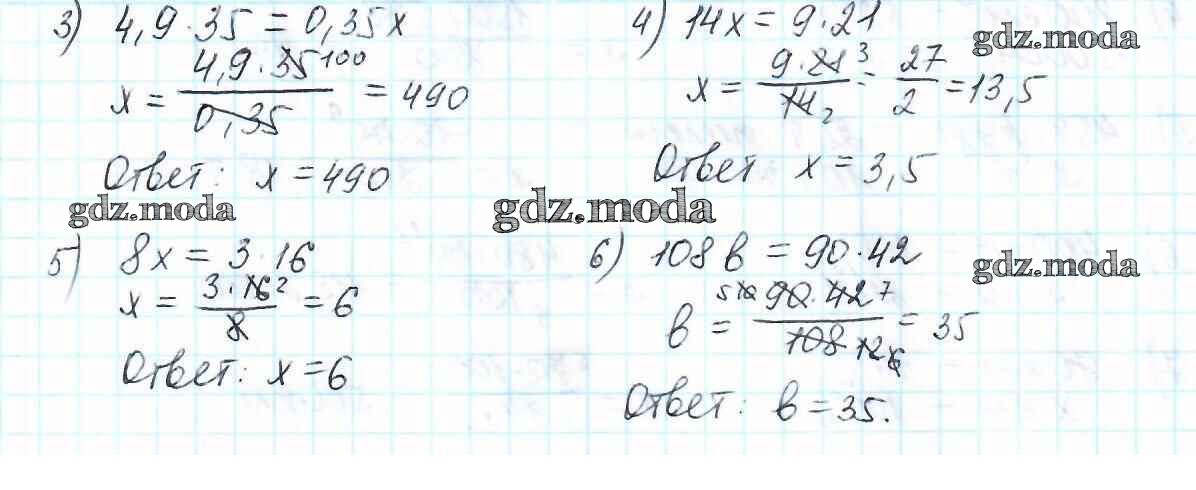 3) 4,9 · 35 = 0,35x
x = 4,9 · 35 100 / 0,35 = 490
Ответ: x = 490
4) 14x = 9 · 21
x = 9 · 21 3 / 14 2 = 27 / 2 = 13,5
Ответ x = 3,5
gdz.moda
gdz.moda
gdz.moda
5) 8x = 3 · 16
x = 3 · 16 2 / 8 = 6
Ответ: x = 6
6) 108 в = 90 · 42
в = 5 10 90 · 42 7 / 108 12 6 = 35
Ответ: в = 35.
gdz.moda